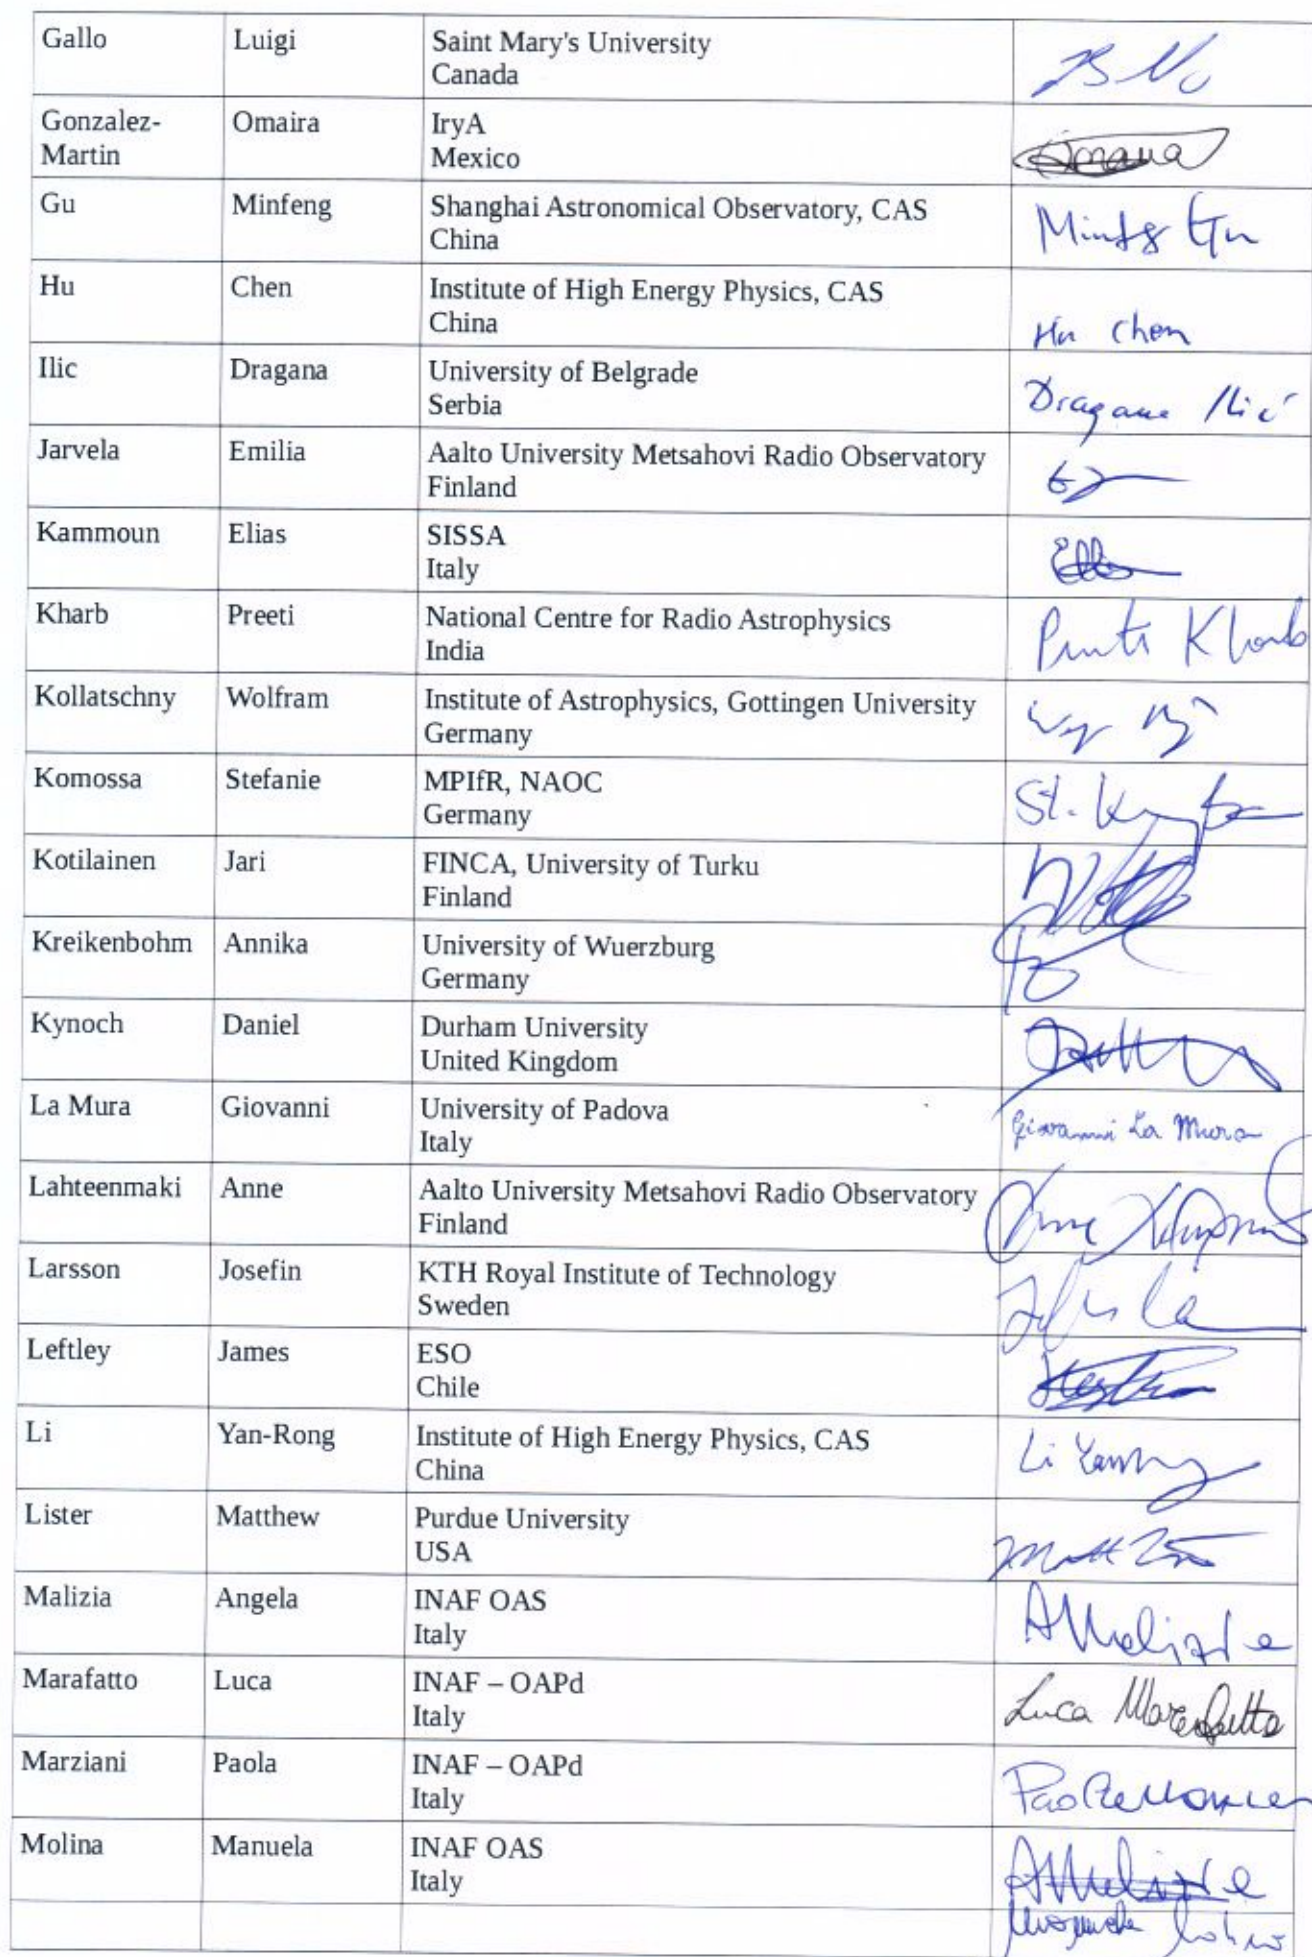 Gallo Luigi Saint Mary's University
Canada
Gonzalez- Omaira IryA
Martin Mexico
Omaira
Gu Minfeng Shanghai Astronomical Observatory, CAS
China
Gu
Hu Chen Institute of High Energy Physics, CAS
China
Hu Chen
Ilic Dragana University of Belgrade
Serbia
Dragana Ilić
Jarvela Emilia Aalto University Metsahovi Radio Observatory
Finland
Kammoun Elias SISSA
Italy
Kharb Preeti National Centre for Radio Astrophysics
India
Preeti Kharb
Kollatschny Wolfram Institute of Astrophysics, Gottingen University
Germany
Komossa Stefanie MPIfR, NAOC
Germany
St.
Kotilainen Jari FINCA, University of Turku
Finland
Kreikenbohm Annika University of Wuerzburg
Germany
Kynoch Daniel Durham University
United Kingdom
La Mura Giovanni University of Padova
Italy
Giovanni La Mura
Lahteenmaki Anne Aalto University Metsahovi Radio Observatory
Finland
Anne
Larsson Josefin KTH Royal Institute of Technology
Sweden
Leftley James ESO
Chile
Li Yan-Rong Institute of High Energy Physics, CAS
China
Li
Lister Matthew Purdue University
USA
Matt
Malizia Angela INAF OAS
Italy
AMalizia
Marafatto Luca INAF – OAPd
Italy
Luca Marafatto
Marziani Paola INAF – OAPd
Italy
Paola
Molina Manuela INAF OAS
Italy